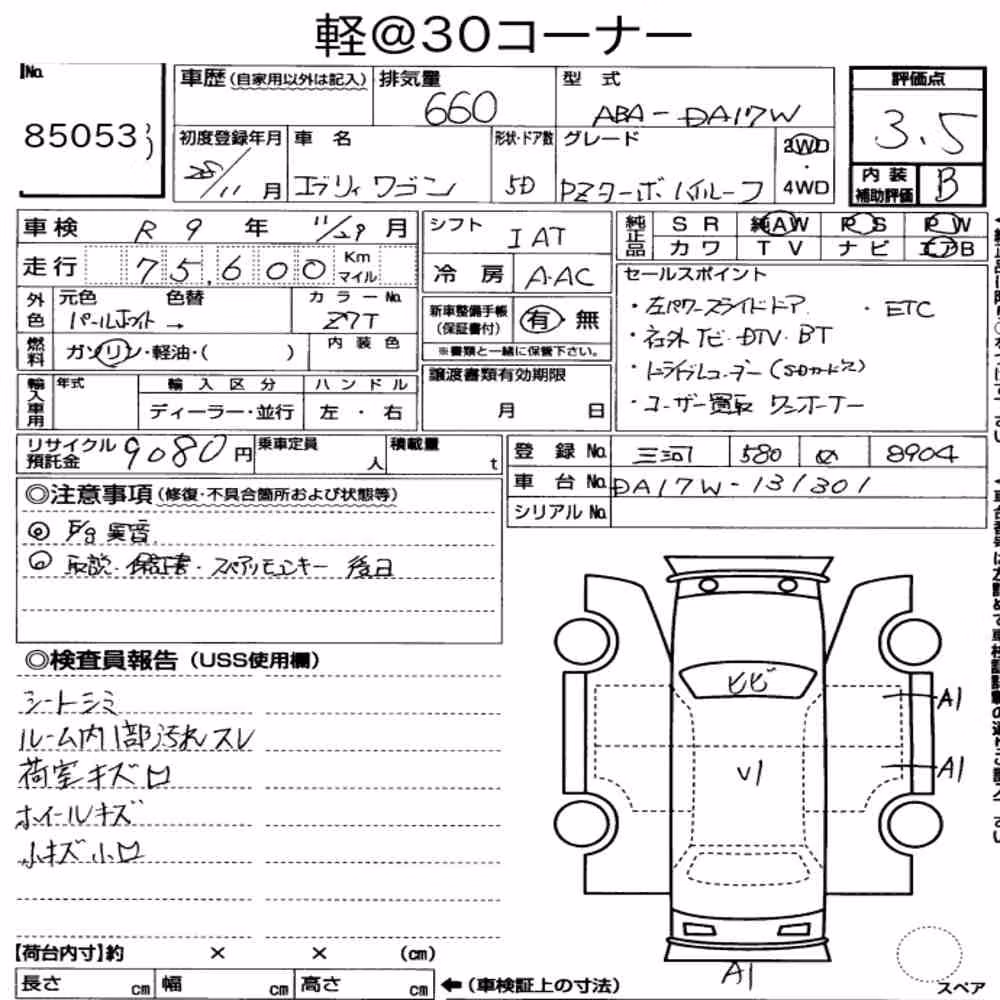 軽@30コーナー
No.
85053
車歴（自家用以外は記入）
排気量
660
型 式
ABA-DA17W
評価点
3.5
初度登録年月
28/11 月
車 名
エブリィワゴン
形状・ドア数
5D
グレード
PZターボハイルーフ
2WD
・
4WD
内装
補助評価
B
車検 R 9 年 11/29 月
走行 75,600 Km
マイル
シフト
IAT
冷 房
A・AC
純正品
S R 純AW P S P W
カワ TV ナビ エアB
外色
元色 色替
パールホワイト →
カラーNo.
Z7T
新車整備手帳
（保証書付）
有・無
※書類と一緒に保管下さい。
燃料
ガソリン・軽油・（ ）
内装色
セールスポイント
・左パワースライドドア ・ETC
・社外ナビ・DTV・BT
・ドライブレコーダー（SDカード欠）
・ユーザー買取 ワンオーナー
輸入車用
年式
輸入区分
ハンドル
ディーラー・並行
左・右
譲渡書類有効期限
月 日
リサイクル
預託金
9080円
乗車定員
人
積載量
t
登録No. 三河 580 8904
車台No. DA17W-131301
シリアルNo.
◎注意事項（修復・不具合箇所および状態等）
◎ E/g異音
○ 取説・保証書・スペアリモコンキー 後日
◎検査員報告（USS使用欄）
シートシミ
ルーム内1部汚れスレ
荷室キズ
ホイールキズ
小キズ小
ヒビ
A1
A1
V1
A1
【荷台内寸】約 × × （cm）
長さ cm 幅 cm 高さ cm
←（車検証上の寸法）
スペア